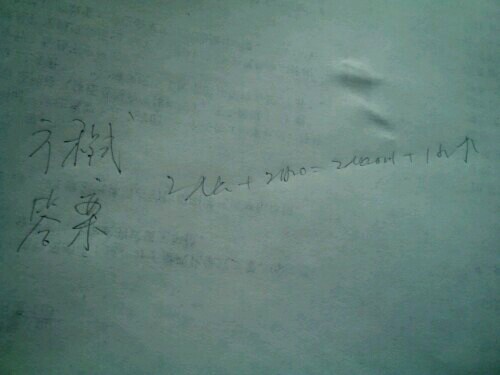 方程式
答案
2Na + 2H2O = 2NaOH + H2↑